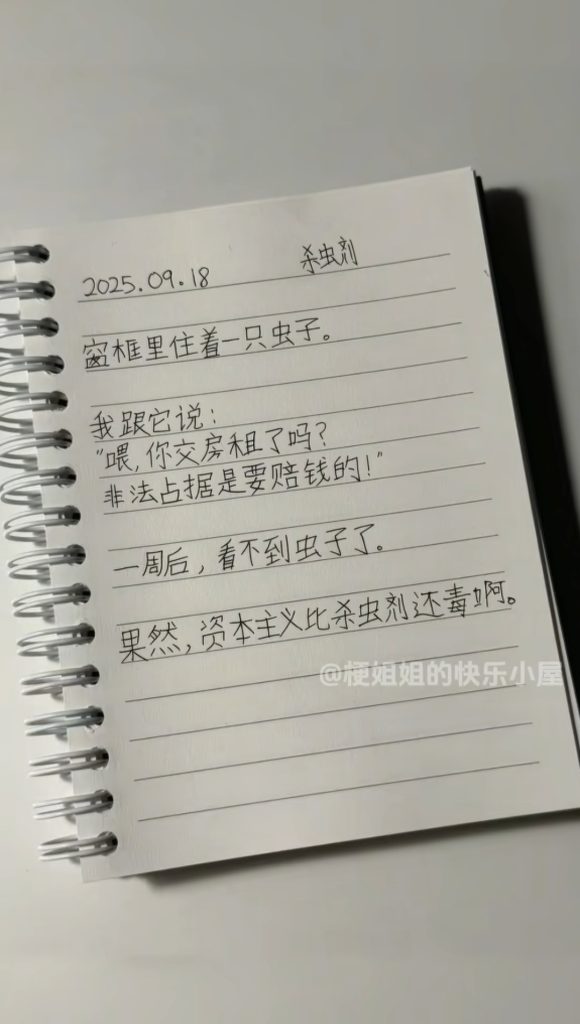 2025.09.18 杀虫剂
窗框里住着一只虫子。
我跟它说：
“喂，你交房租了吗？
非法占据是要赔钱的！”
一周后，看不到虫子了。
果然，资本主义比杀虫剂还毒啊。
@梗姐姐的快乐小屋